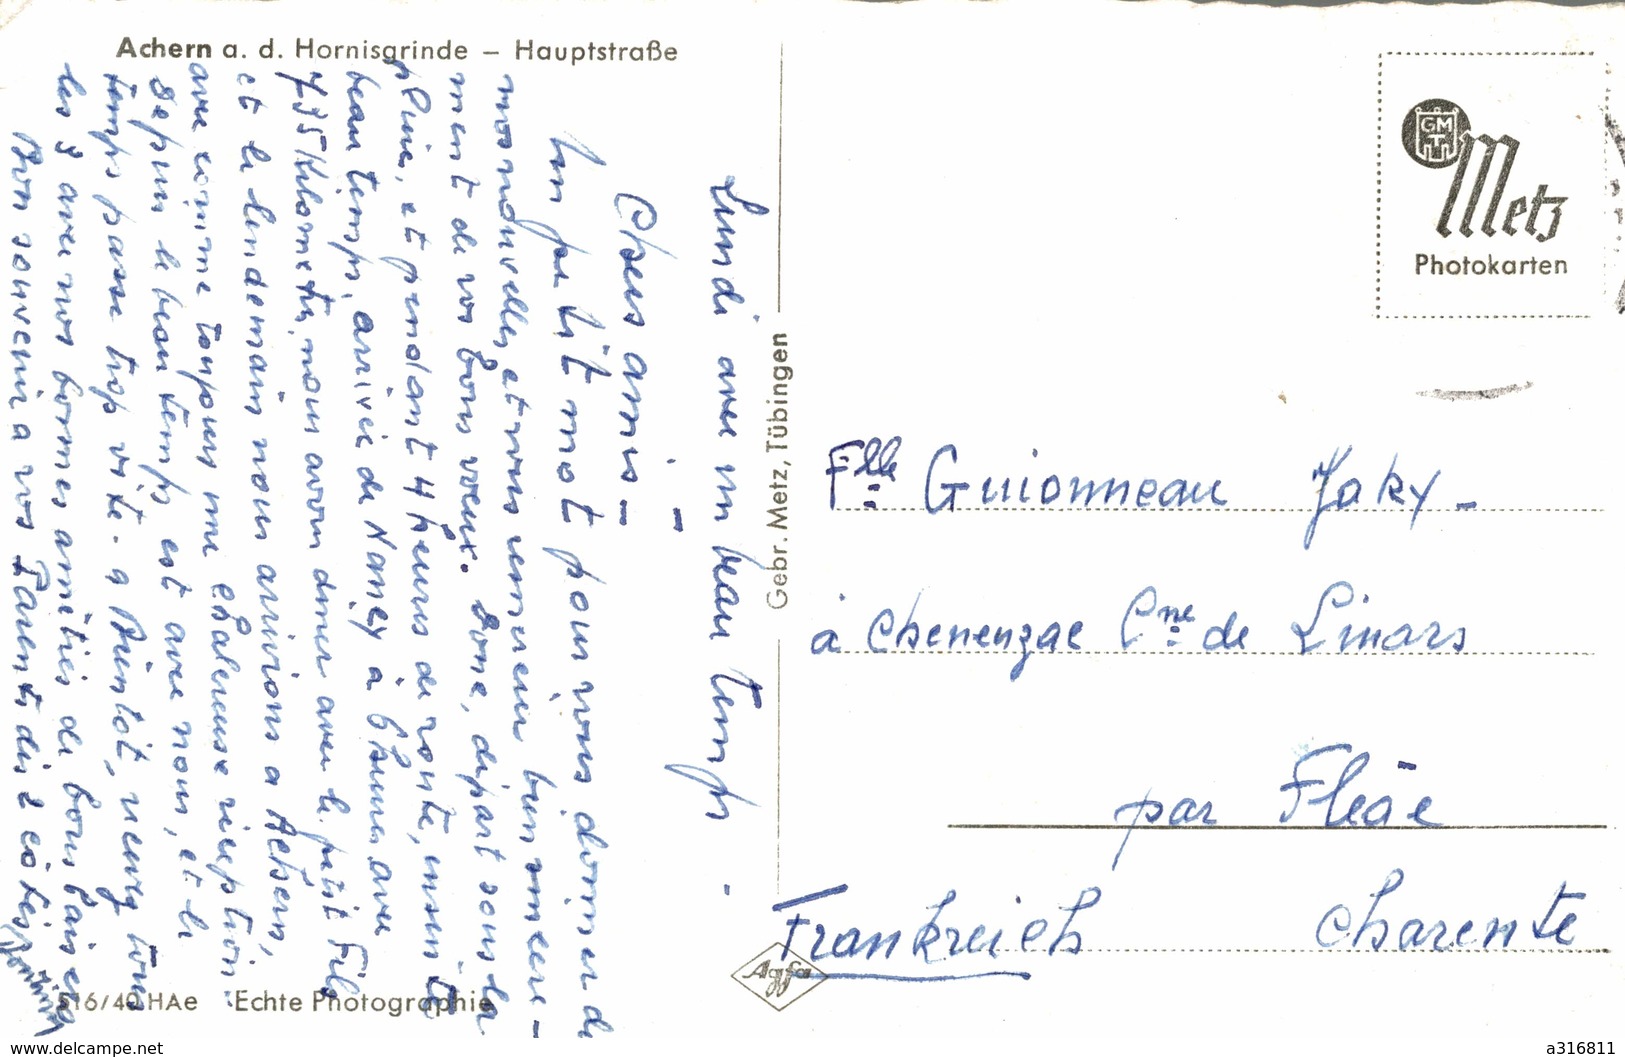 Achern a. d. Hornisgrinde – Hauptstraße
Lundi avec un beau temps -
Chers amis -
Un petit mot pour vous donner de
nos nouvelles, et vous remercier bien vivement
de vos bons voeux. Donc, départ sous la
pluie, et pendant 4 heures de route, ensuite
beau temps, arrivée de Nancy à 6 heures avec
735 Kilometre, nous avons diner avec le petit Fils
et le lendemain nous arrivions a Achern,
avec comme toujours une chaleureuse réception
depuis le beau temps est avec nous, et le
temps passe trop vite. a Bientot, recevez tous
les 3 avec nos bonnes amitiés de bons baisers
Bon souvenir a vos Parents des 2 cotés
Gebr. Metz, Tübingen
516/40 HAe Echte Photographie
Agfa
GMT
Metz
Photokarten
Flle Guionneau Jaky -
à Chenenzac Cne de Linars
par Fléac
Charente
Frankreich
www.delcampe.net
a316811